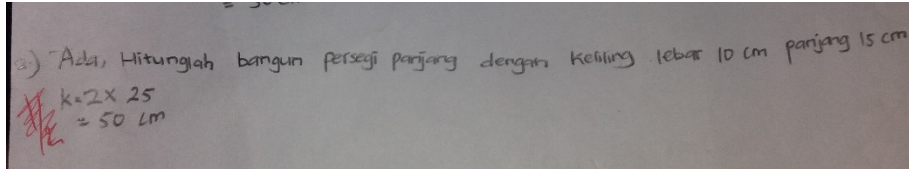 3.) Ada, Hitunglah bangun persegi panjang dengan keliling lebar 10 cm panjang 15 cm
k=2x 25
= 50 cm